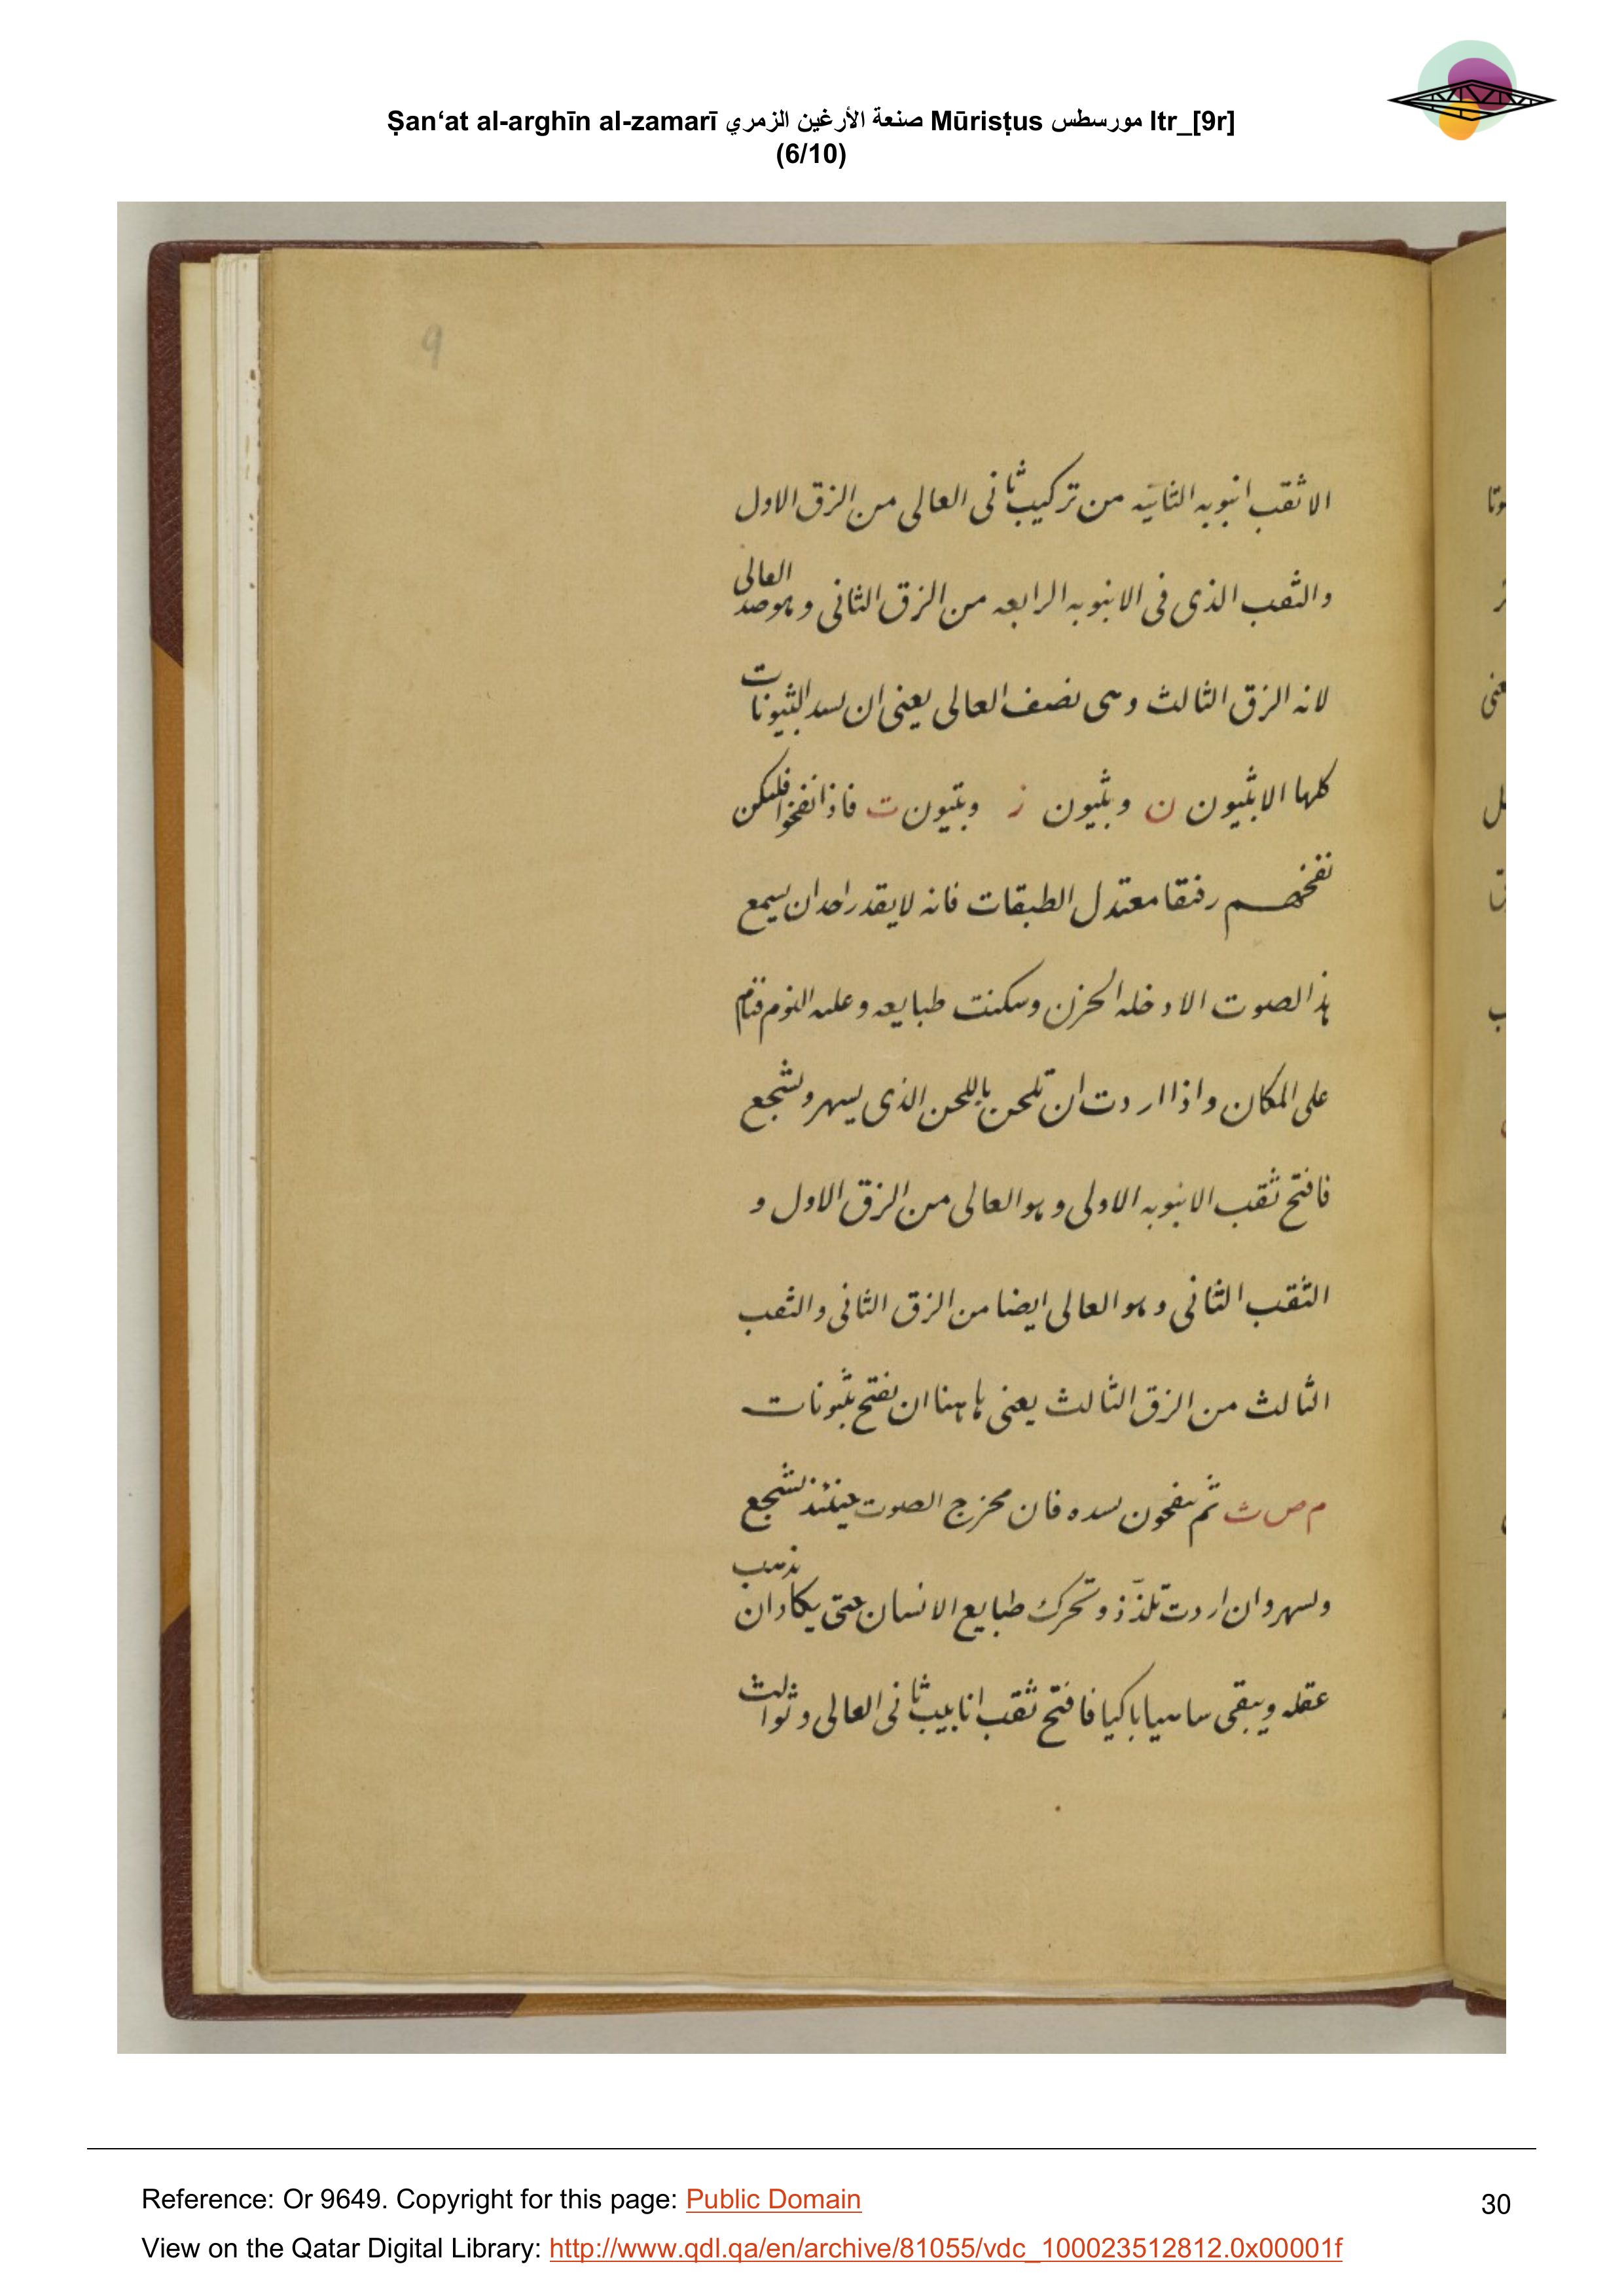 Ṣan‘at al-arghīn al-zamarī صنعة الأرغين الزمري Mūrisṭus مورسطس ltr_[9r]
(6/10)
9
الا ثقب انبوبه الثانيه من تركيب ثانى العالى من الزق الاول
والثقب الذى فى الانبوبه الرابعه من الزق الثانى وهو ضد العالى
لانه الزق الثالث وهى نصف العالى يعنى ان يسد البثيونات
كلها الا بثيون ن وبثيون ز وبثيون ت فاذا نفخوا فليكن
نفخهم رفقا معتدل الطبقات فانه لا يقدر احد ان يسمع
هذا الصوت الا دخله الحزن وسكنت طبايعه وعليه النوم فنام
على المكان واذا اردت ان تلحن باللحن الذى يسهر ويشجع
فافتح ثقب الانبوبه الاولى وهو العالى من الزق الاول و
الثقب الثانى وهو العالى ايضا من الزق الثانى والثقب
الثالث من الزق الثالث يعنى هاهنا ان يفتح بثيونات
م ص ث ثم ينفخون بشده فان مخرج الصوت حينئذ يشجع
ويسهر وان اردت تلذذ وتحرك طبايع الانسان حتى يكاد ان يذهب
عقله ويبقى ساهيا باكيا فافتح ثقب انابيب ثانى العالى وثوالث
Reference: Or 9649. Copyright for this page: Public Domain
30
View on the Qatar Digital Library: http://www.qdl.qa/en/archive/81055/vdc_100023512812.0x00001f